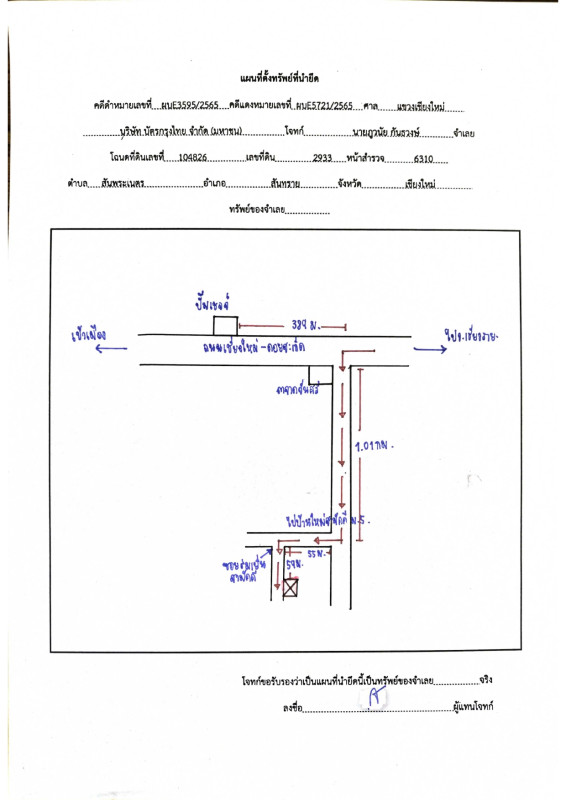 แผนที่ตั้งทรัพย์ที่นำยึด
คดีดำหมายเลขที่ ผบE3595/2565 คดีแดงหมายเลขที่ ผบE5721/2565 ศาล แขวงเชียงใหม่
บริษัท บัตรกรุงไทย จำกัด (มหาชน) โจทก์ นายภูวนัย กันธวงษ์ จำเลย
โฉนดที่ดินเลขที่ 104826 เลขที่ดิน 2933 หน้าสำรวจ 6310
ตำบล สันพระเนตร อำเภอ สันทราย จังหวัด เชียงใหม่
ทรัพย์ของจำเลย
ปั๊มเชลล์
389 ม.
เข้าเมือง
ไปจ.เชียงราย
ถนนเชียงใหม่ - ดอยสะเก็ด
1.01 กม.
ไปบ้านใหม่สามัคคี ม.5.
55 ม.
59 ม.
ซอยร่มเย็น
สามัคคี
โจทก์ขอรับรองว่าเป็นแผนที่นำยึดนี้เป็นทรัพย์ของจำเลย จริง
ลงชื่อ ผู้แทนโจทก์